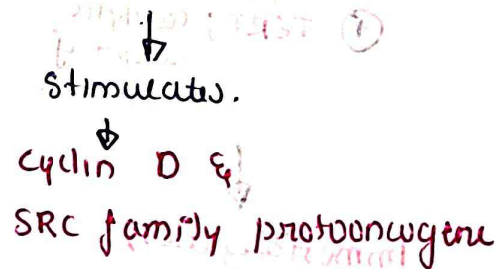 Stimulates.
Cyclin D &
SRC family protooncogene